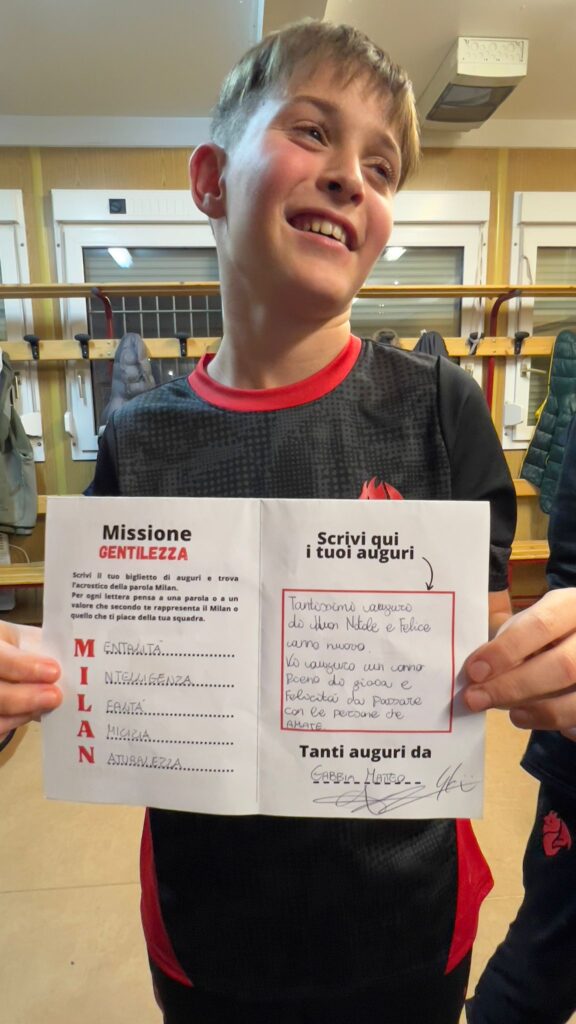 Missione
GENTILEZZA
Scrivi il tuo biglietto di auguri e trova
l'acrostico della parola Milan.
Per ogni lettera pensa a una parola o a un
valore che secondo te rappresenta il Milan o
quello che ti piace della tua squadra.
MENTALITÀ
INTELLIGENZA
LEALTÀ
AMICIZIA
NATURALEZZA
Scrivi qui
i tuoi auguri
Tantissimi auguri
di Buon Natale e Felice
anno nuovo.
Vi auguro un anno
pieno di gioia e
felicità da passare
con le persone che
AMATE.
Tanti auguri da
GABBIA MATTEO